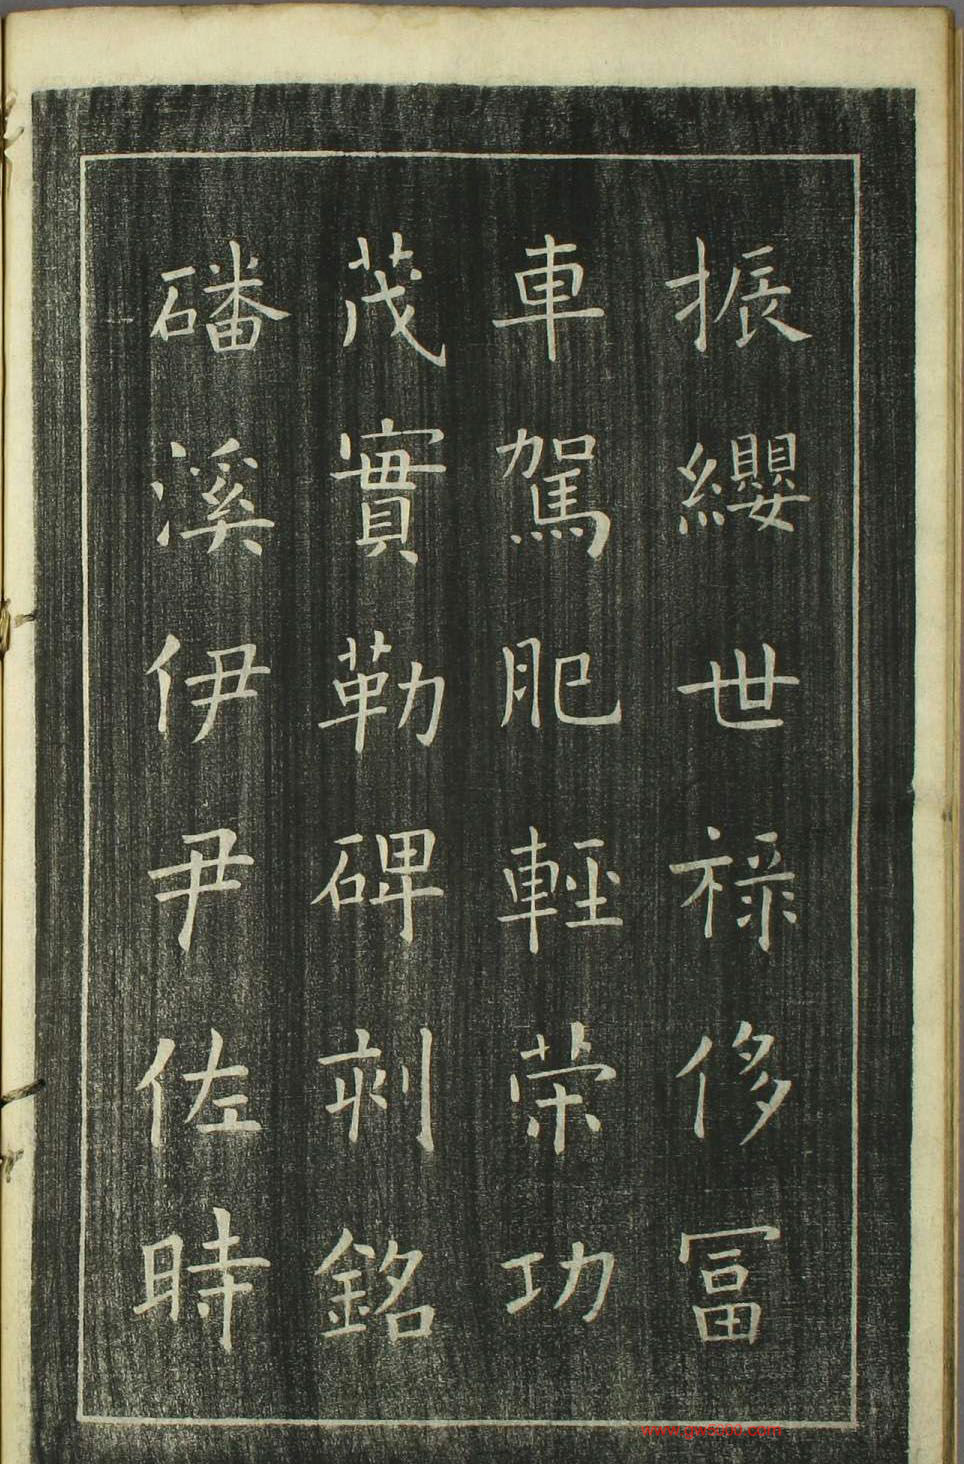 振纓世祿侈冨
車駕肥輕荣功
茂實勒碑刻銘
磻溪伊尹佐時
www.gw8000.com